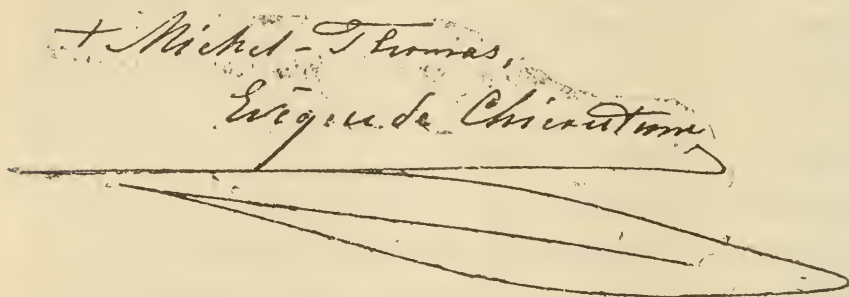 + Michel-Thomas,
Evêque de Chicoutimi